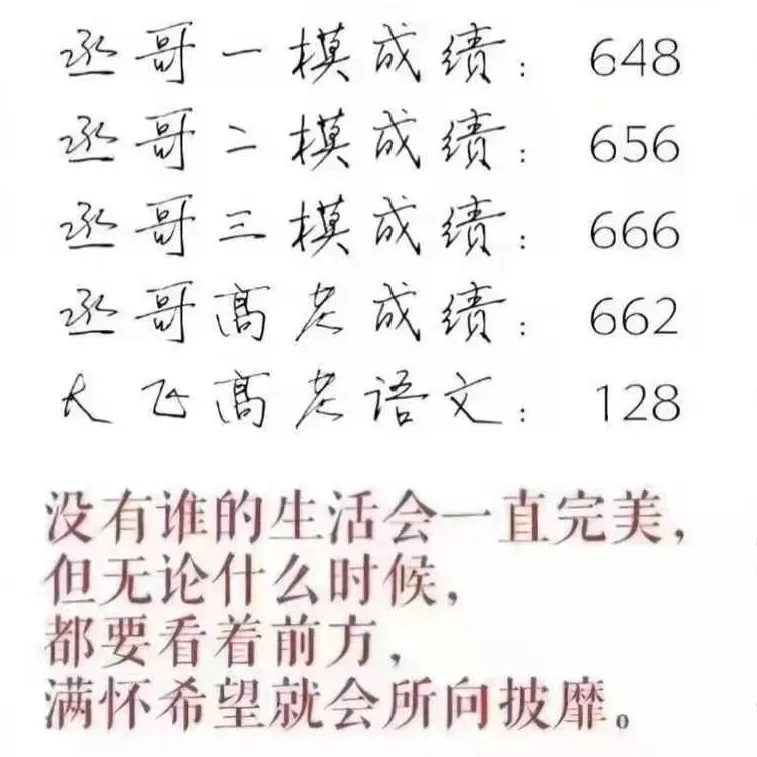 丞哥一模成绩：648
丞哥二模成绩：656
丞哥三模成绩：666
丞哥高考成绩：662
大飞高考语文：128
没有谁的生活会一直完美，
但无论什么时候，
都要看着前方，
满怀希望就会所向披靡。